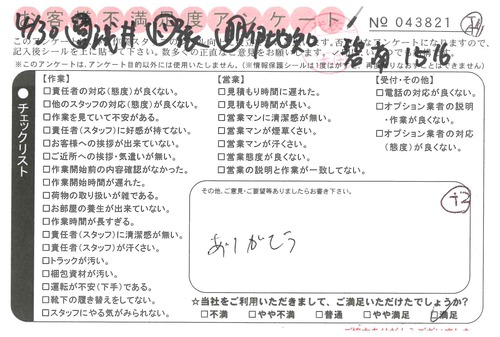 お客様不満足度アンケート
No 043821
4/30
碧南 1516
※このアンケートは、アンケート目的以外には使用いたしません。(※情報保護シールは1度はがすと、再度貼りなおすことはできません)
チェックリスト
【作業】
□責任者の対応(態度)が良くない。
□他のスタッフの対応(態度)が良くない。
□作業を見ていて不安がある。
□責任者(スタッフ)に好感が持てない。
□お客様への挨拶が出来ていない。
□ご近所への挨拶・気遣いが無い。
□作業開始前の内容確認がなかった。
□作業開始時間が遅れた。
□荷物の取り扱いが雑である。
□お部屋の養生が出来ていない。
□作業時間が長すぎる。
□責任者(スタッフ)に清潔感が無い。
□責任者(スタッフ)が汗くさい。
□トラックが汚い。
□梱包資材が汚い。
□運転が不安(下手)である。
□靴下の履き替えをしてない。
□スタッフにやる気がみられない。
【営業】
□見積もり時間に遅れた。
□見積もり時間が長い。
□営業マンに清潔感が無い。
□営業マンが煙草くさい。
□営業マンが汗くさい。
□営業態度が良くない。
□営業の説明と作業が一致してない。
【受付・その他】
□電話の対応が良くない。
□オプション業者の説明
・作業が良くない。
□オプション業者の対応
(態度)が良くない。
その他、ご意見・ご要望等ありましたらお書き下さい。
ありがとう
☆当社をご利用いただきまして、ご満足いただけたでしょうか?
□不満 □やや不満 □普通 □やや満足 □満足